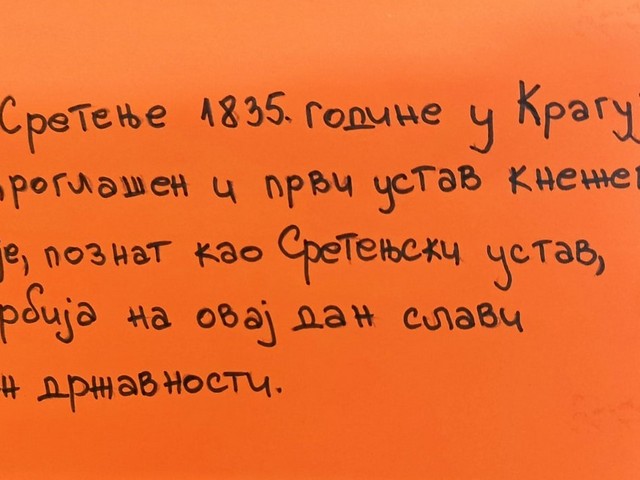 Сретење 1835. године у Крагуј
роглашен и први устав кнеже
је, познат као Сретењски устав,
рбија на овај дан слави
н државности.